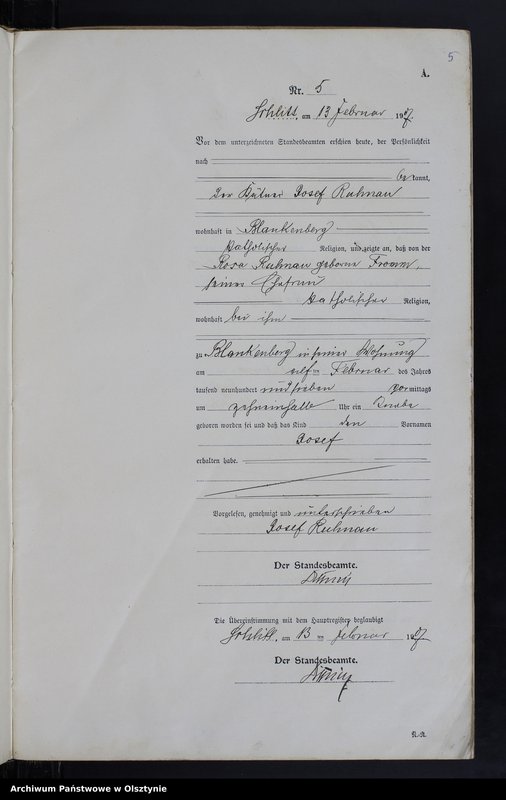 5
A.
Nr. 5
Schlitt, am 13 Februar 1907.
Vor dem unterzeichneten Standesbeamten erschien heute, der Persönlichkeit
nach
be kannt,
der Josef Ruhnau
wohnhaft in Blankenberg
katholischer Religion, und zeigte an, daß von der
Rosa Ruhnau geborne Fromm,
seiner Ehefrau
katholischer Religion,
wohnhaft bei ihm
zu Blankenberg in seiner Wohnung
am elf ten Februar des Jahres
tausend neunhundert und sieben vormittags
um zehneinhalb Uhr ein Knabe
geboren worden sei und daß das Kind den Vornamen
Josef
erhalten habe.
Vorgelesen, genehmigt und unterschrieben
Josef Ruhnau
Der Standesbeamte.
Die Übereinstimmung mit dem Hauptregister beglaubigt
Schlitt, am 13 ten Februar 1907.
Der Standesbeamte.
Archiwum Państwowe w Olsztynie